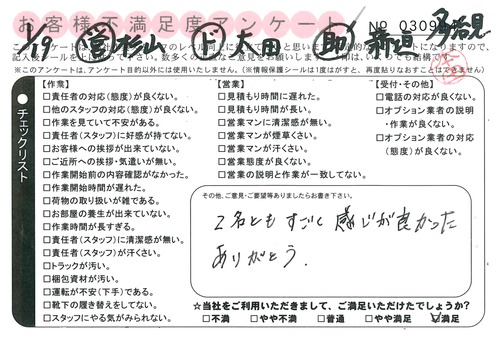 お客様不満足度アンケート
№ 0309
1/19 営 杉山 ド 太田 助 新道 多治見
記入後シールをはがしてください。
(※このアンケートは、アンケート目的以外には使用いたしません。)(※情報保護シールは1度はがすと、再度貼りなおすことはできません)
チェックリスト
【作業】
□責任者の対応(態度)が良くない。
□他のスタッフの対応(態度)が良くない。
□作業を見ていて不安がある。
□責任者(スタッフ)に好感が持てない。
□お客様への挨拶が出来ていない。
□ご近所への挨拶・気遣いが無い。
□作業開始前の内容確認がなかった。
□作業開始時間が遅れた。
□荷物の取り扱いが雑である。
□お部屋の養生が出来ていない。
□作業時間が長すぎる。
□責任者(スタッフ)に清潔感が無い。
□責任者(スタッフ)が汗くさい。
□トラックが汚い。
□梱包資材が汚い。
□運転が不安(下手)である。
□靴下の履き替えをしてない。
□スタッフにやる気がみられない。
【営業】
□見積もり時間に遅れた。
□見積もり時間が長い。
□営業マンに清潔感が無い。
□営業マンが煙草くさい。
□営業マンが汗くさい。
□営業態度が良くない。
□営業の説明と作業が一致してない。
【受付・その他】
□電話の対応が良くない。
□オプション業者の説明
・作業が良くない。
□オプション業者の対応
(態度)が良くない。
その他、ご意見・ご要望等ありましたらお書き下さい。
2名とも すごく 感じが良かった
ありがとう.
☆当社をご利用いただきまして、ご満足いただけたでしょうか?
□不満 □やや不満 □普通 □やや満足 ☑満足